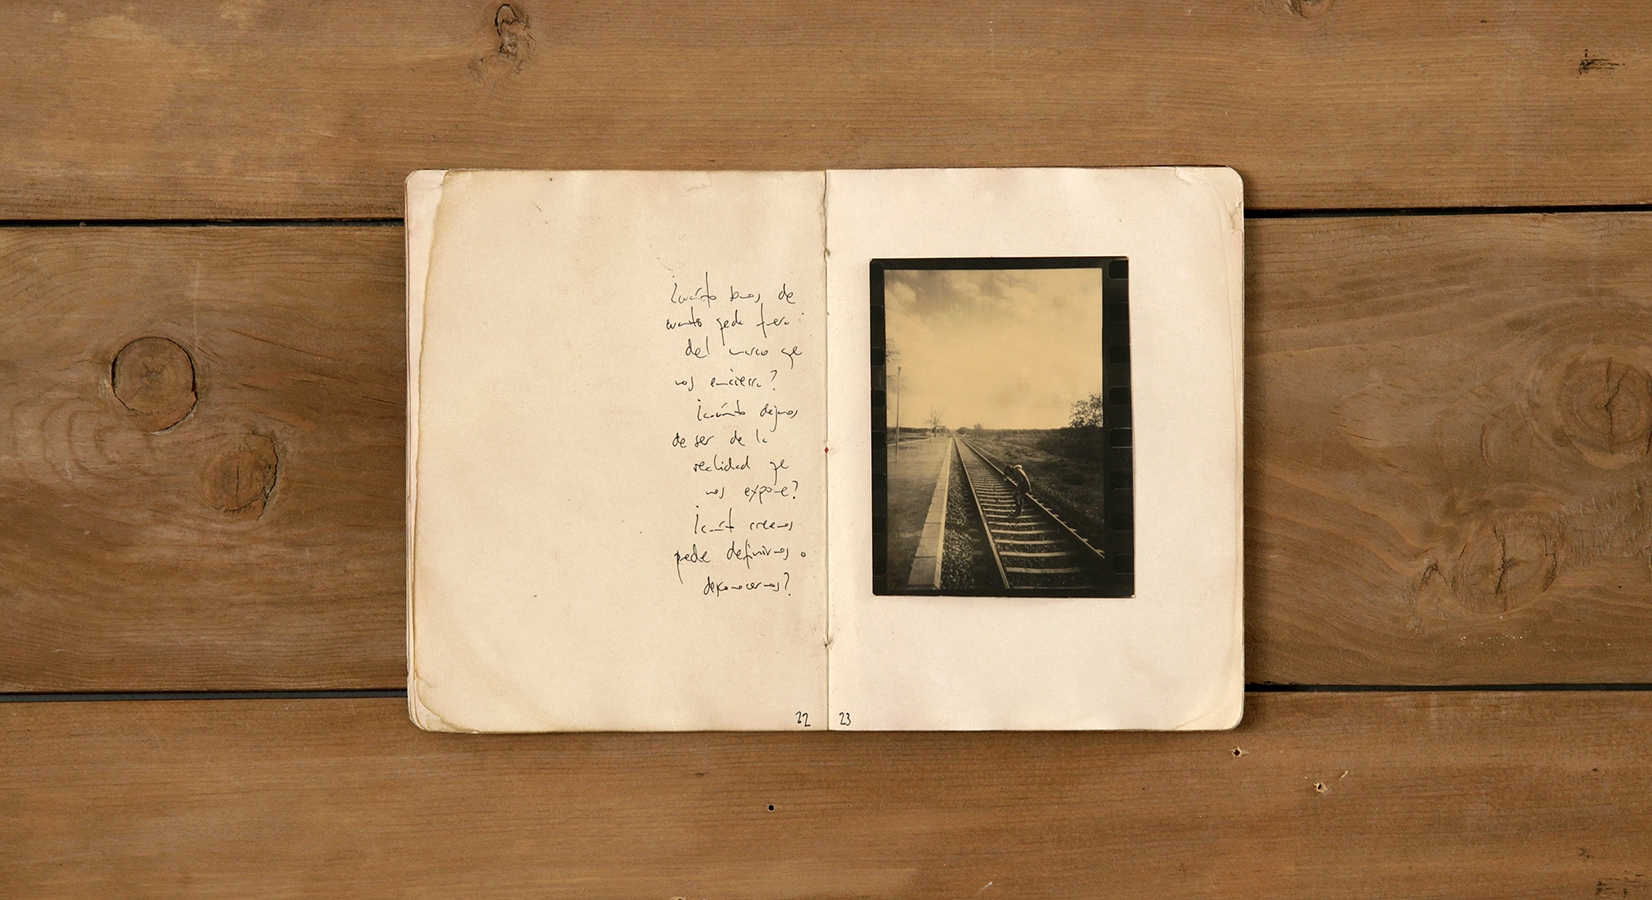 ¿cuánto somos de
cuanto queda fuera
del marco que
nos encierra?
¿cuánto dejamos
de ser de la
realidad que
nos expone?
¿cuánto creemos
puede definirnos o
desconocernos?
22
23